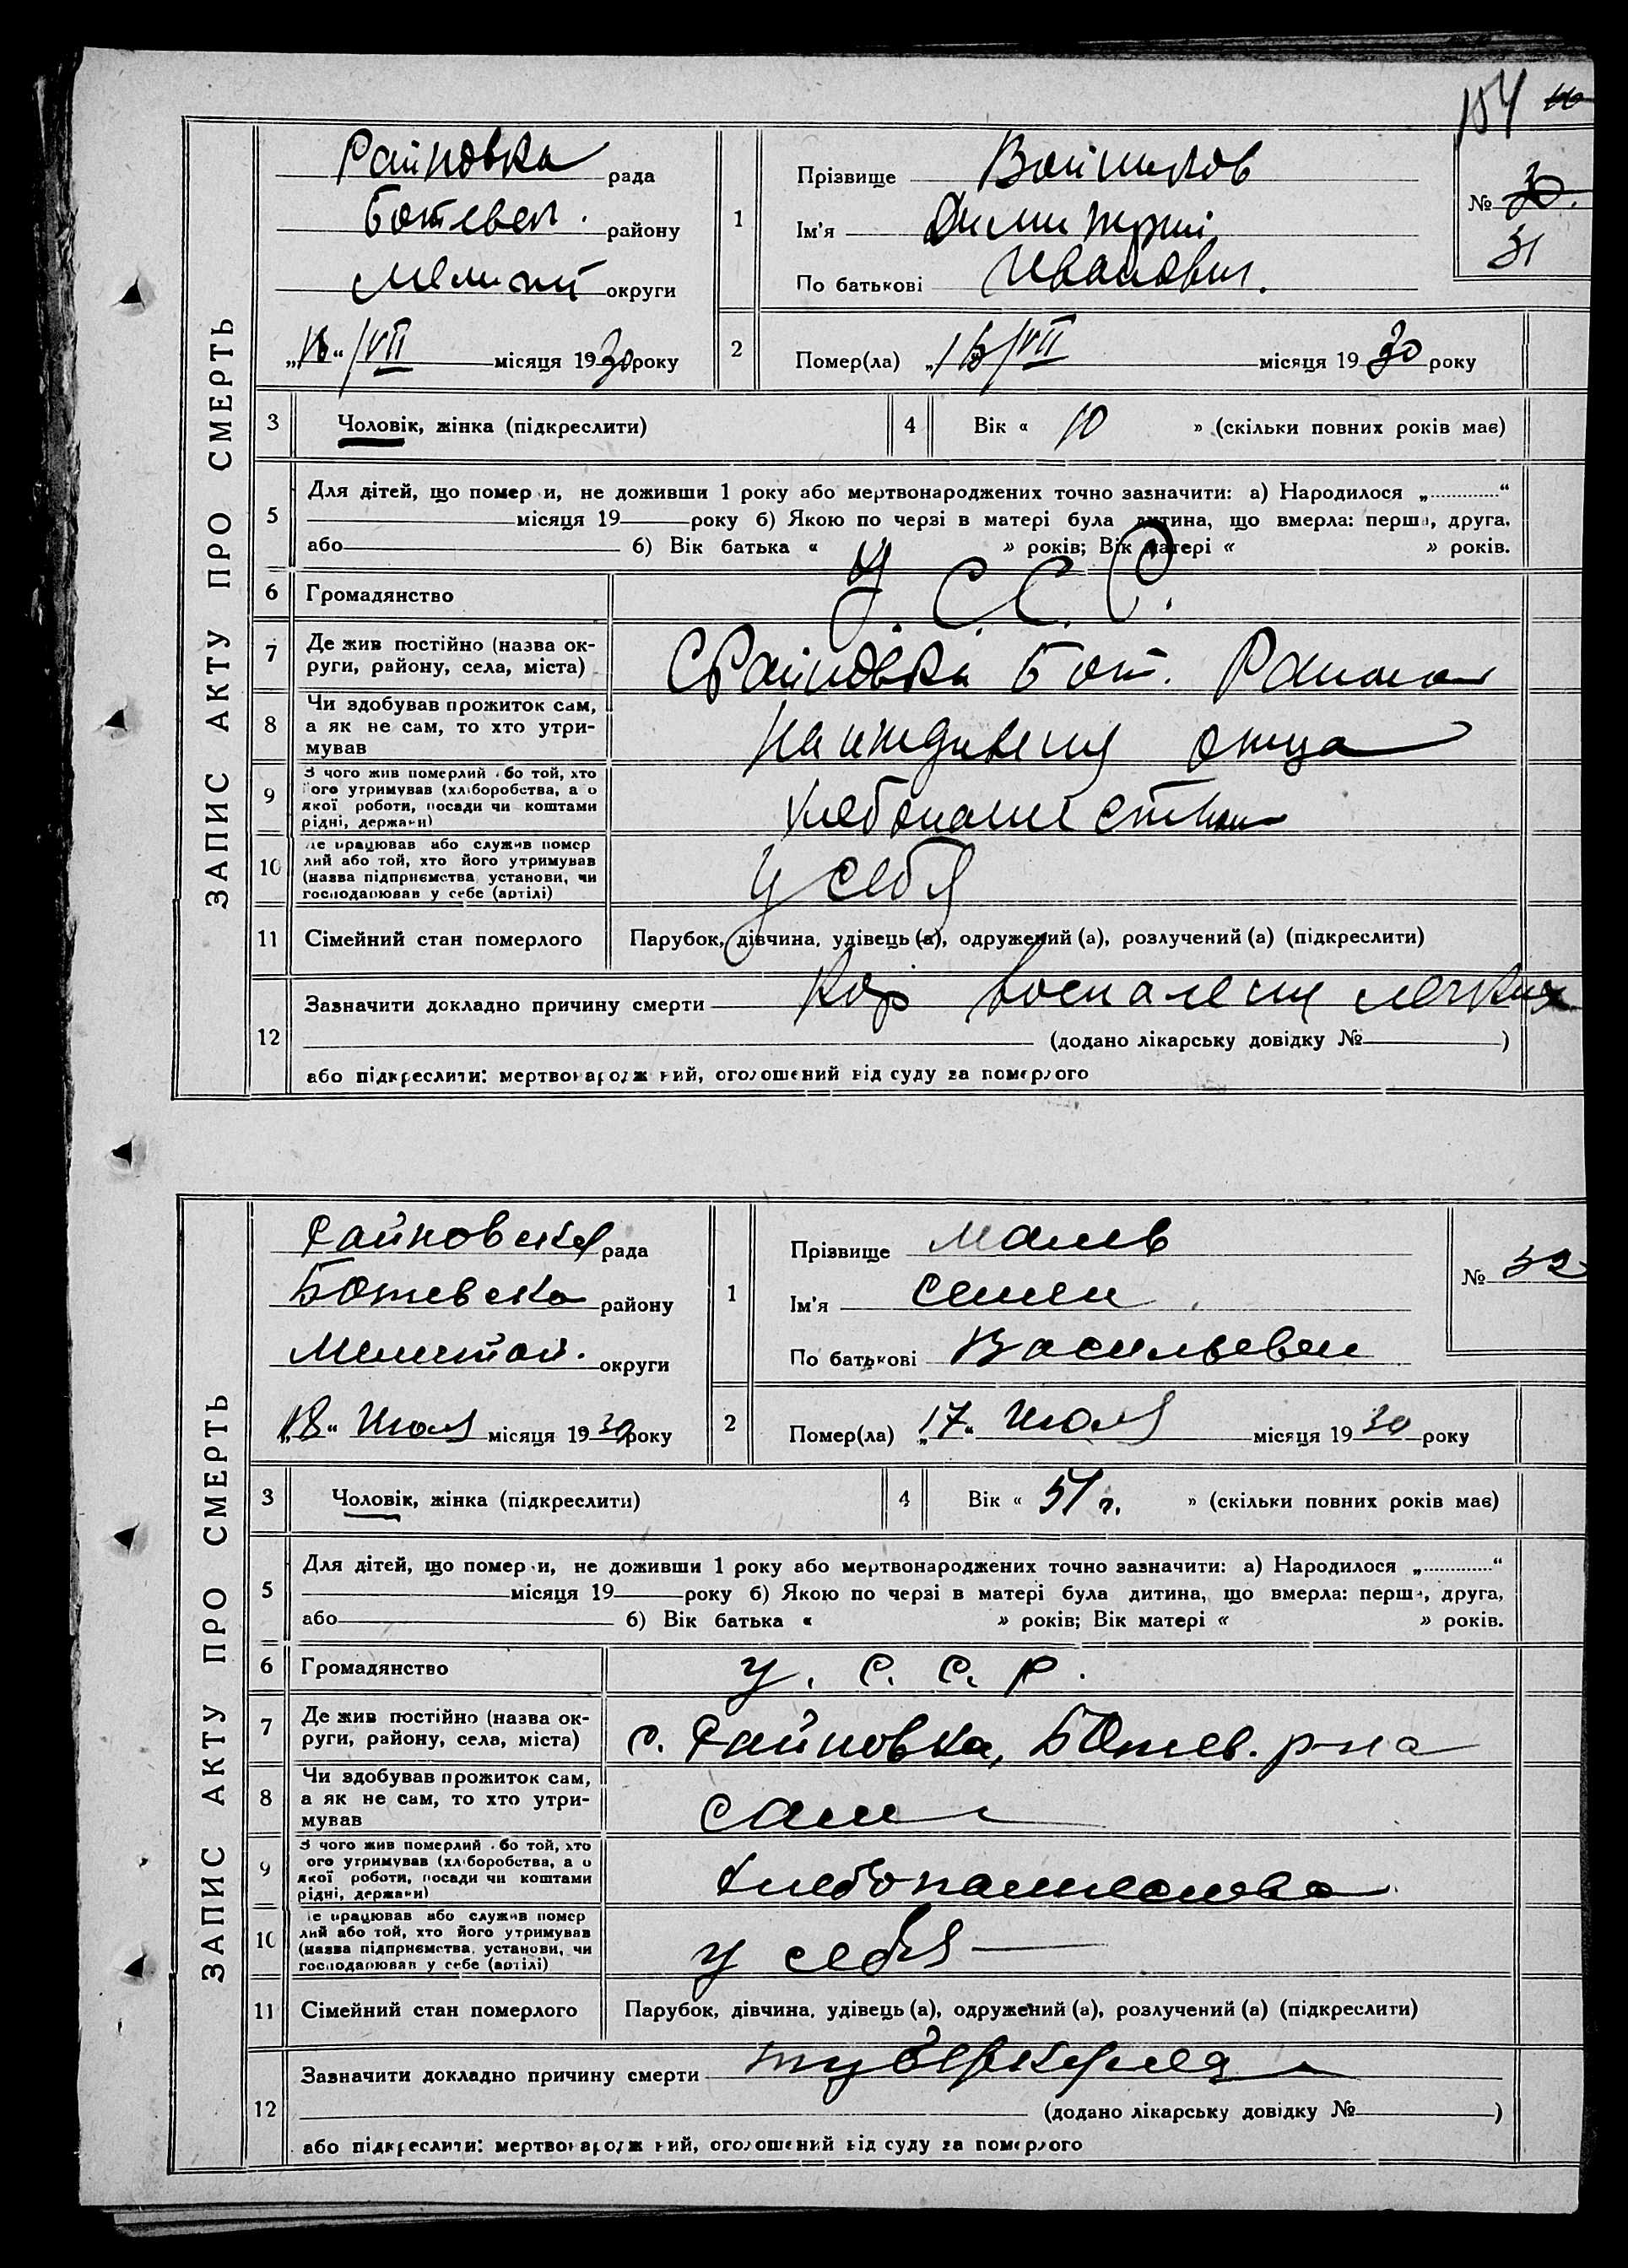 154
ЗАПИС АКТУ ПРО СМЕРТЬ
Райновка рада
Ботевск. району
Мелит округи
"16" /VII місяця 1930 року
1
Прізвище
Ім'я Димитрий
По батькові Иванович.
№ 30.
31
2
Помер(ла) „15/VII місяця 1930 року
3
Чоловік, жінка (підкреслити)
4
Вік « 10 » (скільки повних років має)
5
Для дітей, що померли, не доживши 1 року або мертвонароджених точно зазначити: а) Народилося „..........“
місяця 19 року б) Якою по черзі в матері була дитина, що вмерла: перша, друга,
або б) Вік батька « » років; Вік матері « » років.
6
Громадянство У. С. С. Р.
7
Де жив постійно (назва ок-
руги, району, села, міста)
С Райновка Бот. Района
8
Чи здобував прожиток сам,
а як не сам, то хто утри-
мував
На иждивении отца
9
З чого жив померлий або той, хто
його утримував (хліборобства, а о
якої роботи, посади чи коштами
рідні, держави)
10
Де працював або служив помер
лий або той, хто його утримував
(назва підприємства, установи, чи
господарював у себе (артілі)
У себя
11
Сімейний стан померлого
Парубок, дівчина, удівець (а), одружений (а), розлучений (а) (підкреслити)
12
Зазначити докладно причину смерти Кор воспаление легких
(додано лікарську довідку № )
або підкреслити: мертвонароджений, оголошений від суду за померлого
ЗАПИС АКТУ ПРО СМЕРТЬ
Райновская рада
Ботевска району
Мелитоп. округи
„18“ Июля місяця 1930 року
1
Прізвище
Ім'я Семен
По батькові Васильевич
№ 32
2
Помер(ла) „17“ Июля місяця 1930 року
3
Чоловік, жінка (підкреслити)
4
Вік « 51 г. » (скільки повних років має)
5
Для дітей, що померли, не доживши 1 року або мертвонароджених точно зазначити: а) Народилося „..........“
місяця 19 року б) Якою по черзі в матері була дитина, що вмерла: перша, друга,
або б) Вік батька « » років; Вік матері « » років.
6
Громадянство У. С. С. Р.
7
Де жив постійно (назва ок-
руги, району, села, міста)
с. Райновка, Ботев. р-на
8
Чи здобував прожиток сам,
а як не сам, то хто утри-
мував
сам
9
З чого жив померлий або той, хто
його утримував (хліборобства, а о
якої роботи, посади чи коштами
рідні, держави)
Хлебопашество
10
Де працював або служив помер
лий або той, хто його утримував
(назва підприємства, установи, чи
господарював у себе (артілі)
у себя
11
Сімейний стан померлого
Парубок, дівчина, удівець (а), одружений (а), розлучений (а) (підкреслити)
12
Зазначити докладно причину смерти
(додано лікарську довідку № )
або підкреслити: мертвонароджений, оголошений від суду за померлого